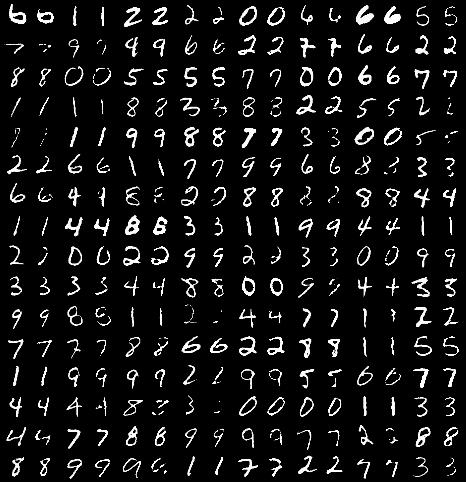 6 6 1 1 2 2 2 2 0 0 6 6 6 6 5 5
7 7 9 9 4 9 6 6 2 2 7 7 6 6 2 2
8 8 0 0 5 5 5 5 7 7 0 0 6 6 7 7
1 1 1 1 8 8 3 3 8 3 2 2 5 5 2 2
1 1 9 9 8 8 7 7 3 3 0 0 5 5
2 2 6 6 1 1 7 7 9 9 6 6 8 3 3
6 6 4 4 8 8 2 2 8 8 8 8 8 4 4
1 1 4 4 8 8 3 3 1 1 9 9 4 4 1 1
2 2 0 0 2 2 9 9 2 2 3 3 0 0 9 9
3 3 3 3 4 4 8 8 0 0 9 9 4 4 3 3
9 9 8 8 1 1 2 4 4 7 7 1 1 2 2
7 7 7 7 8 8 6 6 2 2 8 8 1 1 5 5
1 1 9 9 9 9 2 2 9 9 5 5 6 6 7 7
4 4 4 4 8 8 3 0 0 0 0 1 1 3 3
4 4 7 7 8 8 9 9 9 9 7 7 2 2 8 8
8 8 9 9 9 1 1 7 7 2 2 7 7 3 3